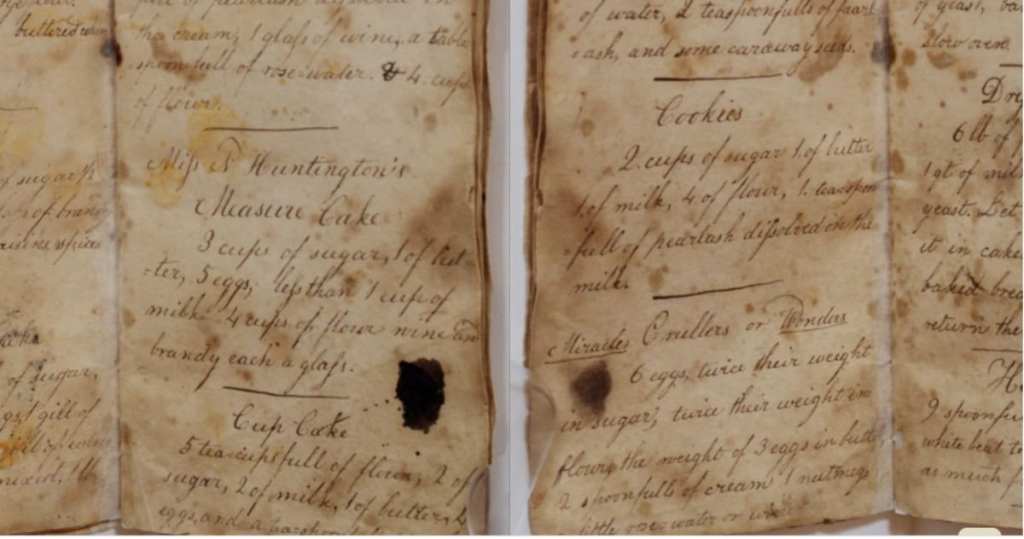 buttered
the cream, 1 glass of wine, a table
spoonfull of rosewater. & 4 cups
of flour.
Miss T Huntington's
Measure Cake
3 cups of sugar, 1 of but
-ter, 5 eggs, less than 1 cup of
milk 4 cups of flour wine and
brandy each a glass.
Cup Cake
5 teacupsfull of flour, 2 of
sugar, 2 of milk, 1 of butter, 2
eggs, and a
of sugar
of sugar,
1 gill of
of water, 2 teaspoonfulls of pearl
ash, and some caraway seeds.
Cookies
2 cups of sugar 1 of butter
1 of milk, 4 of flour, 1 teaspoon
-full of pearlash dissolved in the
milk.
Miracles Crullers or Wonders
6 eggs, twice their weight
in sugar, twice their weight in
flour, the weight of 3 eggs in butt
2 spoonfulls of cream 1 nutmeg
little rosewater or wine
of yeast,
slow oven.
6 lb of
1 qt of mil
yeast. Let
it in cake
baked brea
return the
9 spoonfu
white beat to
as much f